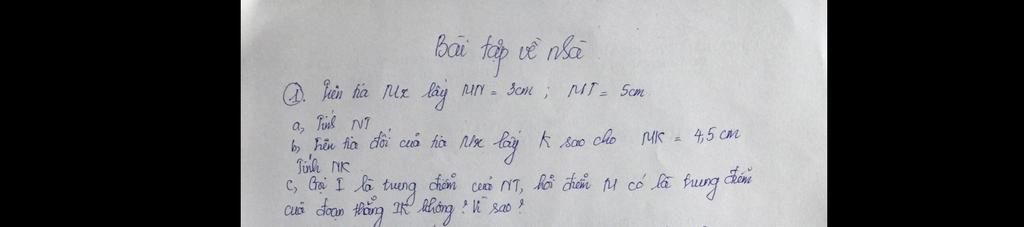 Bài tập về nhà
①. Trên tia Mx lấy MN = 3cm ; MT = 5cm
a, Tính NT
b, Trên tia đối của tia Mx lấy K sao cho MK = 4,5 cm
Tính NK
c, Gọi I là trung điểm của NT, hỏi điểm M có là trung điểm
của đoạn thẳng IK không? Vì sao?